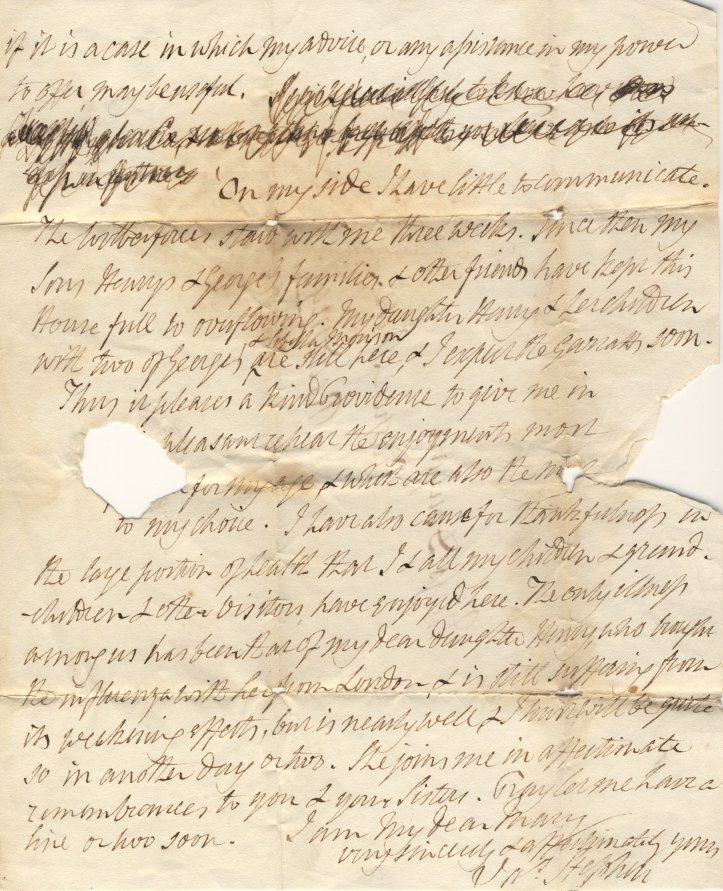 if it is a case in which my advice, or any assistance in my power
to offer, may be useful.
On my side I have little to communicate.
The Wilberforces staid with me three weeks. Since then my
Sons Henry's & George's families & other friends have kept this
House full to overflowing. My daughter Henry & her children
with two of George's are still here, & I expect the Garratts soon.
Thus it pleases a kind Providence to give me in
pleasant retreat the enjoyments most
for my age & which are also the most
to my choice. I have also cause for thankfulness in
the large portion of health that I & all my children & grand-
-children & other Visitors, have enjoyed here. The only illness
among us has been that of my dear daughter Henry, who brought
the influenza with her from London, & is still suffering from
its weakening effects, but is nearly well & I trust will be quite
so in another day or two. She joins me in affectionate
remembrances to you & your Sisters. Pray let me have a
line or two soon. I am My dear Mary
very sincerely & affectionately yours
Stephen